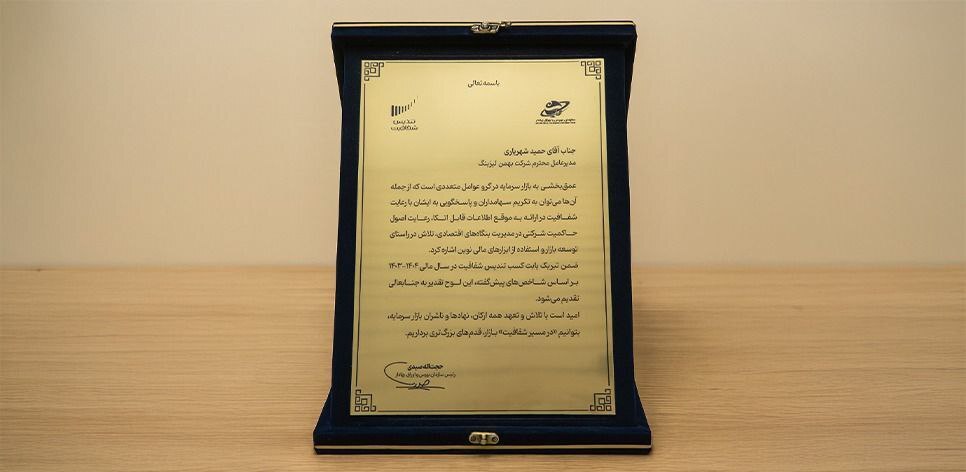 باسمه تعالی
تندیس
شفافیت
جناب آقای حمید شهریاری
مدیرعامل محترم شرکت بهمن لیزینگ
عمق‌بخشی به بازار سرمایه در گرو عوامل متعددی است که از جمله
آن‌ها می‌توان به تکریم سهامداران و پاسخگویی به ایشان با رعایت
شفافیت در ارائه به موقع اطلاعات قابل اتکا، رعایت اصول
حاکمیت شرکتی در مدیریت بنگاه‌های اقتصادی، تلاش در راستای
توسعه بازار و استفاده از ابزارهای مالی نوین اشاره کرد.
ضمن تبریک بابت کسب تندیس شفافیت در سال مالی ۱۴۰۴-۱۴۰۳
بر اساس شاخص‌های پیش‌گفته، این لوح تقدیر به جنابعالی
تقدیم می‌شود.
امید است با تلاش و تعهد همه ارکان، نهادها و ناشران بازار سرمایه،
بتوانیم «در مسیر شفافیت» بازار، قدم‌های بزرگ‌تری برداریم.
حجت‌اله صیدی
رئیس سازمان بورس و اوراق بهادار